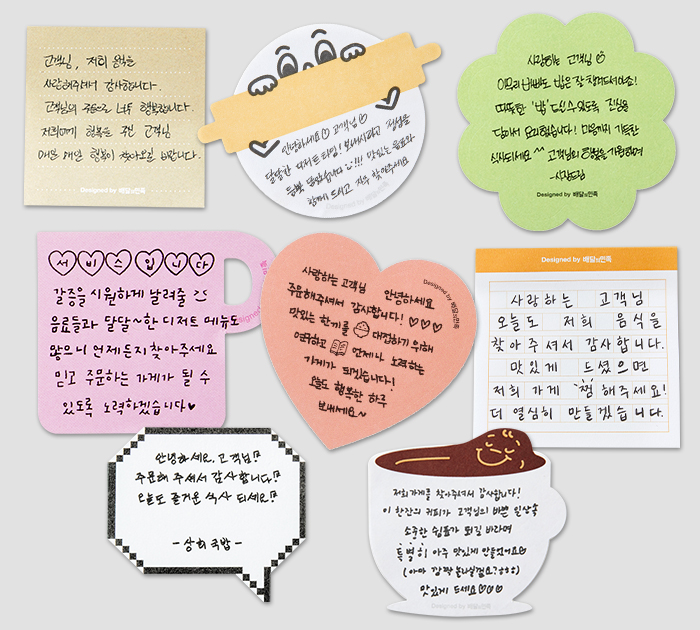 고객님, 저희 음식을
사랑해주셔서 감사합니다.
고객님의 주문으로 너무 행복합니다.
저희에게 행복을 주신 고객님
매일 매일 행복이 찾아오길 바랍니다.
Designed by 배달의민족
안녕하세요♡ 고객님♡
달달한 디저트 타임! 보내시라고 정성을
듬뿍 담았답니다 !!! 맛있는 음료와
함께 드시고 자주 찾아주세요
Designed by 배달의민족
사랑하는 고객님
아무리 바빠도 밥은 잘 챙겨드셔야죠!
따뜻한 '밥' 드실 수 있도록 진심을
담아서 요리했습니다! 마음까지 가득한
식사되세요 ^^ 고객님의 행복을 기원하며
-사장드림-
Designed by 배달의민족
서비스입니다
갈증을 시원하게 날려줄
음료들과 달달~한 디저트 메뉴도
많으니 언제든지 찾아주세요
믿고 주문하는 가게가 될 수
있도록 노력하겠습니다♥
사랑하는 고객님 안녕하세요
주문해주셔서 감사합니다! ♡♡♡
맛있는 한끼를 대접하기 위해
연구하고 언제나 노력하는
가게가 되겠습니다!
오늘도 행복한 하루
보내세요~
Designed by 배달의민족
Designed by 배달의민족
사랑하는 고객님
오늘도 저희 음식을
찾아주셔서 감사합니다.
맛있게 드셨으면
저희 가게 '찜'해주세요!
더 열심히 만들겠습니다.
안녕하세요. 고객님!
주문해 주셔서 감사합니다!
오늘도 즐거운 식사 되세요!
-상희국밥-
저희가게를 찾아주셔서 감사합니다!
이 한잔의 커피가 고객님의 바쁜 일상속
소중한 쉼표가 되길 바라며
특별히 아주 맛있게 만들었어요
(아마 깜짝 놀라실걸요?ㅎㅎ)
맛있게 드세요♡♡♡
Designed by 배달의민족